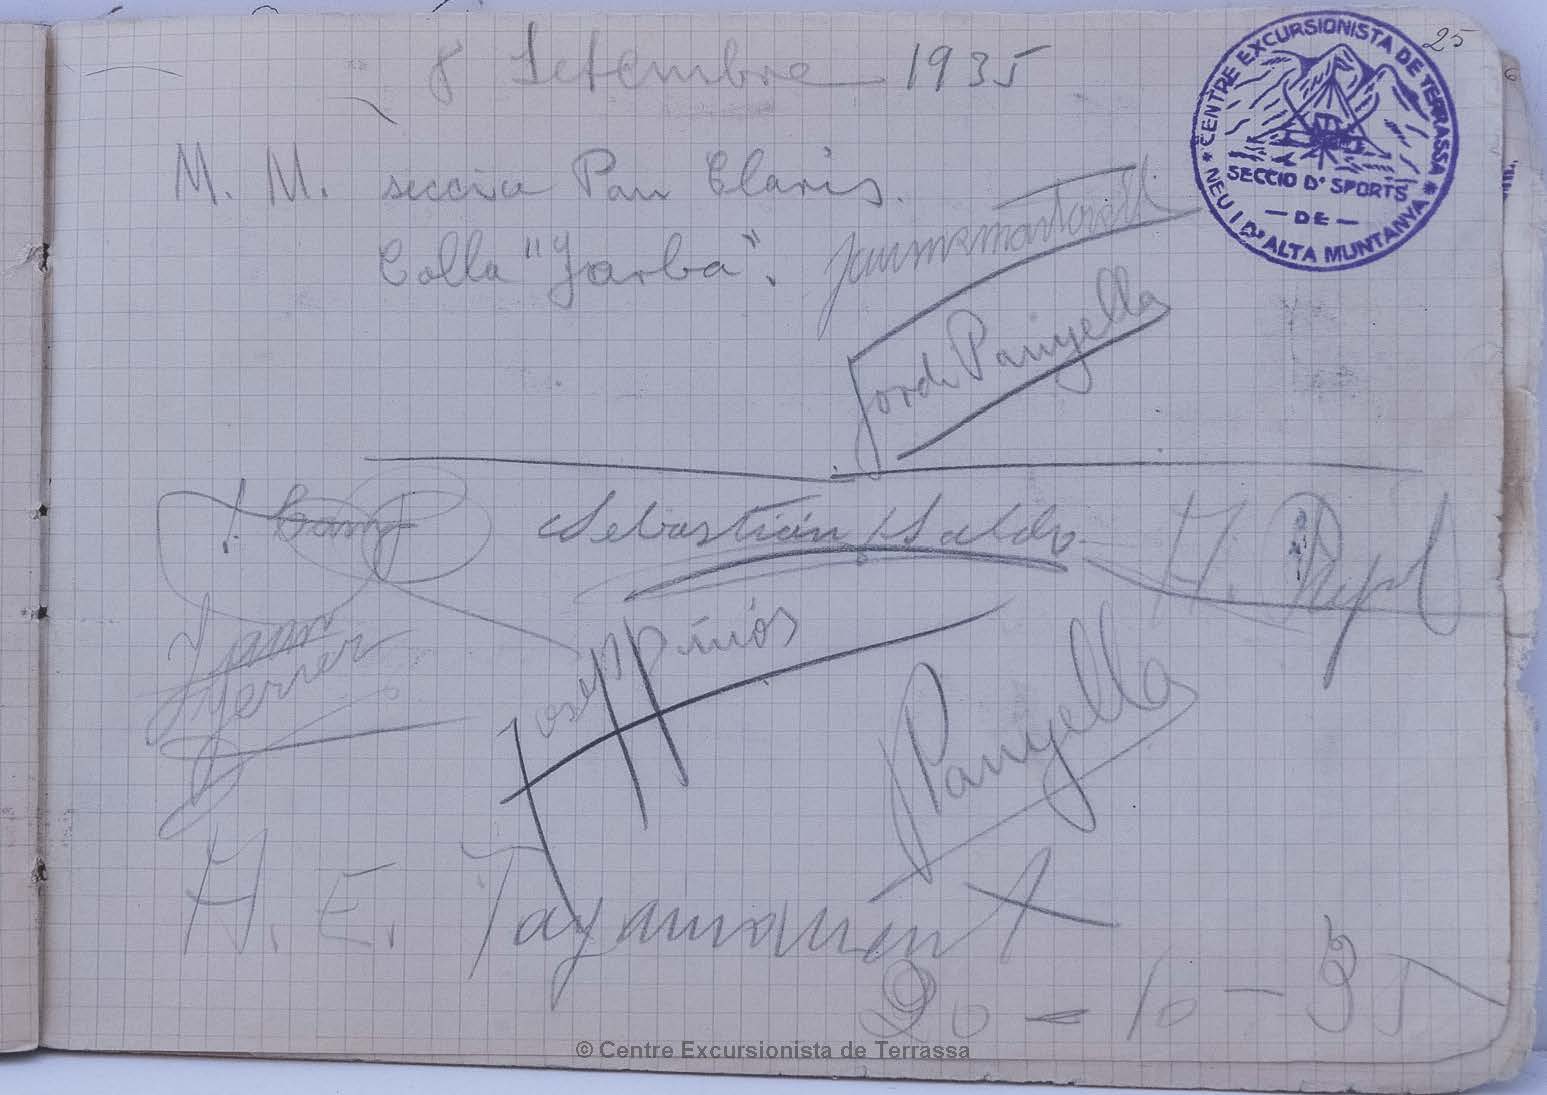 25
8 Setembre 1935
CENTRE EXCURSIONISTA DE TERRASSA
SECCIO D' SPORTS
— DE —
NEU I D' ALTA MUNTANYA
M. M. secció Pau Claris.
Colla "Jarba".
Jordi Panyella
Sebastián
Joan
Ferrer
Josep Piños
Panyella
A. E. Tagamanent
20 - 10 - 35
© Centre Excursionista de Terrassa